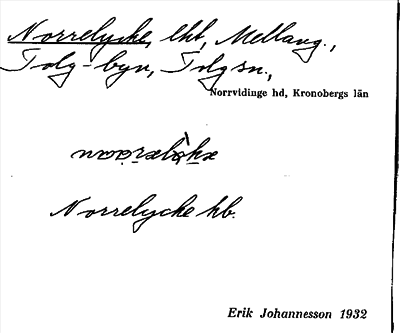 Norrelycke, lht, Mellang.,
Tolg-byn, Tolg sn.,
Norrvidinge hd, Kronobergs län
Norrelycke hb.
Erik Johannesson 1932